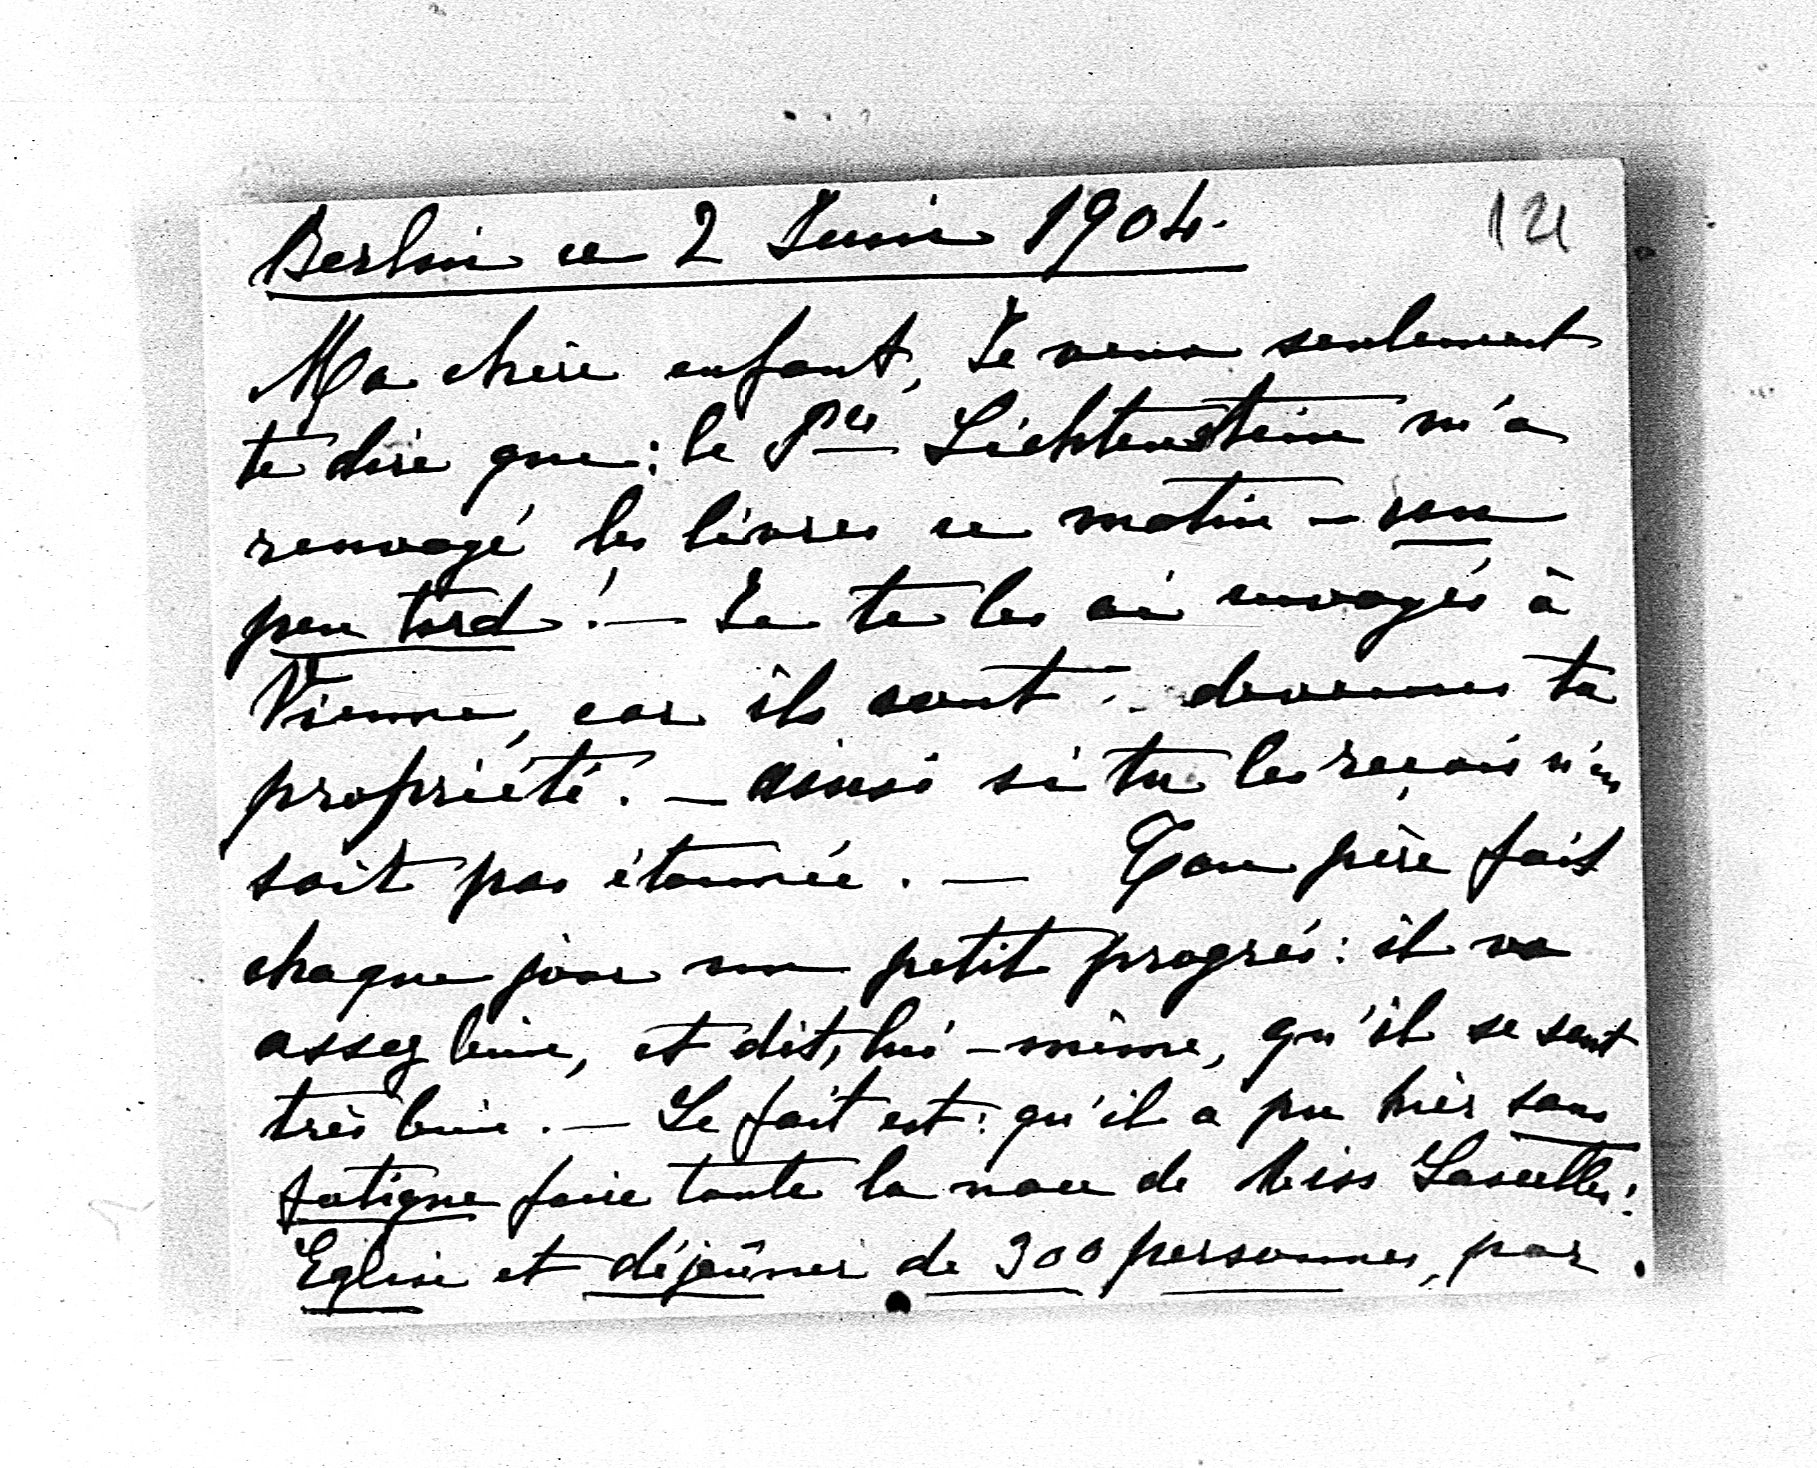 Berlin ce 2 Juin 1904.
121
Ma chère enfant, Je veux seulement
te dire que: le Pce Lichtenstein m'a
renvoyé les livres ce matin – un
peu tard! – Je te les ai envoyés à
Vienne, car ils sont .. devenus ta
propriété. – ainsi si tu les reçois n'en
soit pas étonnée. – Ton père fait
chaque jour un petit progrés: il va
assez bien, et dit, lui-même, qu'il se sent
très bien. – Le fait est: qu'il a pu hièr sans
fatigue faire toute la noce de Miss Lascelles:
Eglise et déjeûner de 300 personnes, par